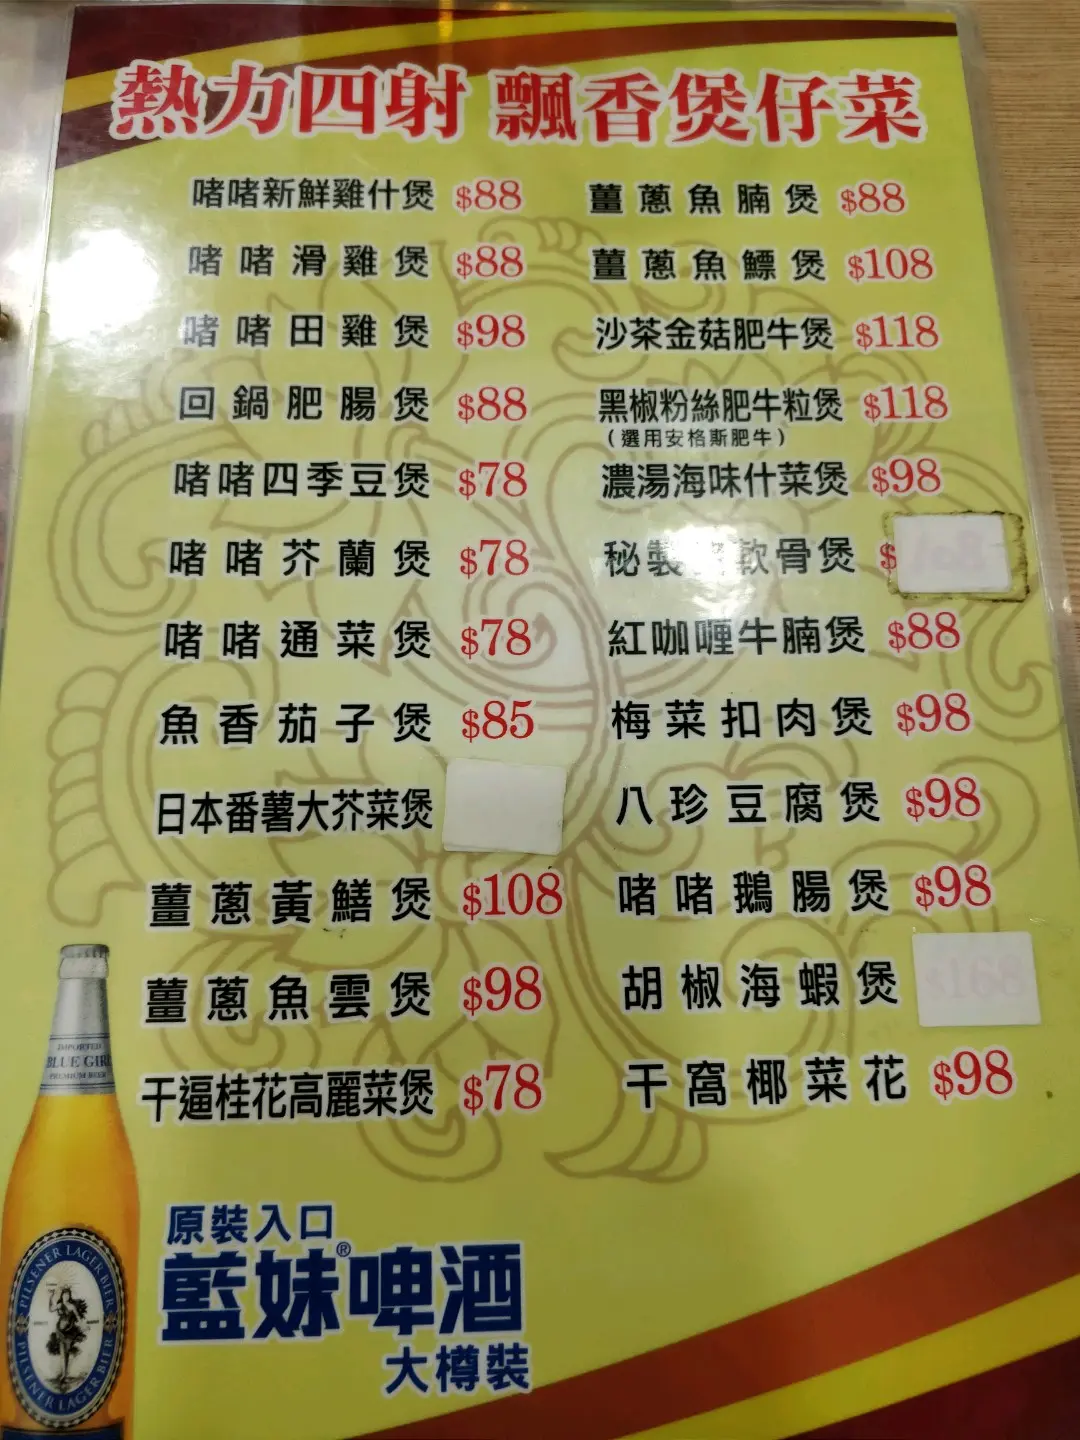 熱力四射 飄香煲仔菜
啫啫新鮮雞什煲 $88
啫啫滑雞煲 $88
啫啫田雞煲 $98
回鍋肥腸煲 $88
啫啫四季豆煲 $78
啫啫芥蘭煲 $78
啫啫通菜煲 $78
魚香茄子煲 $85
日本番薯大芥菜煲
薑蔥黃鱔煲 $108
薑蔥魚雲煲 $98
干逼桂花高麗菜煲 $78
薑蔥魚腩煲 $88
薑蔥魚鰾煲 $108
沙茶金菇肥牛煲 $118
黑椒粉絲肥牛粒煲 $118
(選用安格斯肥牛)
濃湯海味什菜煲 $98
秘製 軟骨煲 $
紅咖喱牛腩煲 $88
梅菜扣肉煲 $98
八珍豆腐煲 $98
啫啫鵝腸煲 $98
胡椒海蝦煲
干窩椰菜花 $98
IMPORTED
BLUE GIRL
PREMIUM BEER
PILSENER LAGER BIER
PILSENER LAGER BIER
原裝入口
藍妹®啤酒
大樽裝